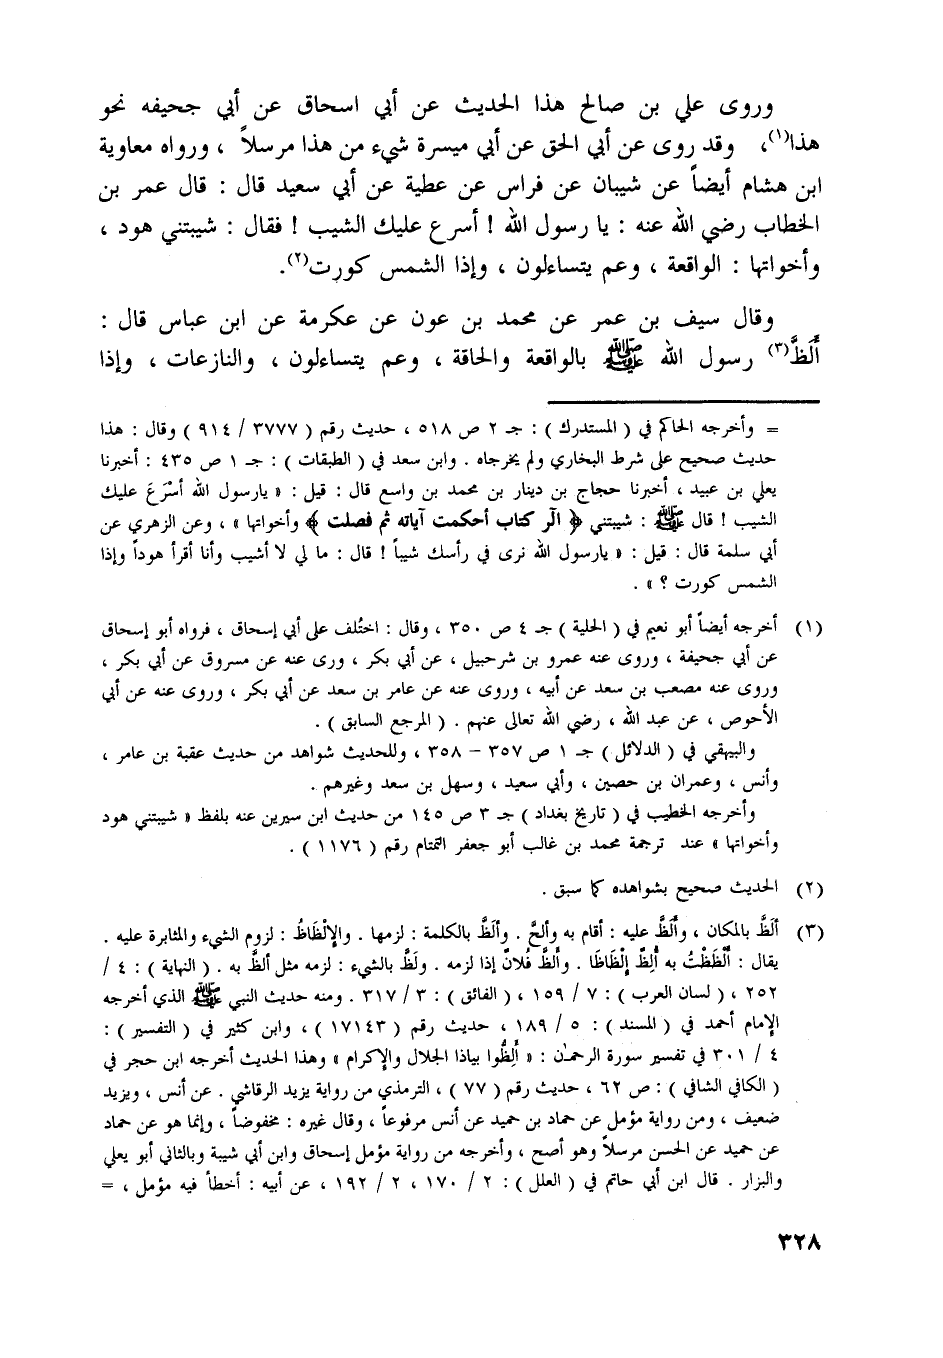 وروى علي بن صالح هذا الحديث عن أبي اسحاق عن أبي جحيفه نحو
هذا(١)، وقد روى عن أبي الحق عن أبي ميسرة شيء من هذا مرسلاً ، ورواه معاوية
ابن هشام أيضاً عن شيبان عن فراس عن عطية عن أبي سعيد قال : قال عمر بن
الخطاب رضي الله عنه : يا رسول الله ! أسرع عليك الشيب ! فقال : شيبتني هود ،
وأخواتها : الواقعة ، وعم يتساءلون ، وإذا الشمس كورت(٢).
وقال سيف بن عمر عن محمد بن عون عن عكرمة عن ابن عباس قال :
أَلَظَّ(٣) رسول الله ﷺ بالواقعة والحاقة ، وعم يتساءلون ، والنازعات ، وإذا
= وأخرجه الحاكم في ( المستدرك ) : جـ ٢ ص ٥١٨ ، حديث رقم ( ٣٧٧٧ / ٩١٤ ) وقال : هذا
حديث صحيح على شرط البخاري ولم يخرجاه . وابن سعد في ( الطبقات ) : جـ ١ ص ٤٣٥ : أخبرنا
يعلي بن عبيد ، أخبرنا حجاج بن دينار بن محمد بن واسع قال : قيل : « يارسول الله أسْرَعَ عليك
الشيب ! قال ﷺ : شيبتني ﴿ الٓر كتاب أحكمت آياته ثم فصلت ﴾ وأخواتها » ، وعن الزهري عن
أبي سلمة قال : قيل : « يارسول الله نرى في رأسك شيباً ! قال : ما لي لا أشيب وأنا أقرأ هوداً وإذا
الشمس كورت ؟ » .
(١) أخرجه أيضاً أبو نعيم في ( الحلية ) جـ ٤ ص ٣٥٠ ، وقال : اختُلف على أبي إسحاق ، فرواه أبو إسحاق
عن أبي جحيفة ، وروى عنه عمرو بن شرحبيل ، عن أبي بكر ، ورى عنه عن مسروق عن أبي بكر ،
وروى عنه مصعب بن سعد عن أبيه ، وروى عنه عن عامر بن سعد عن أبي بكر ، وروى عنه عن أبي
الأحوص ، عن عبد الله ، رضي الله تعالى عنهم . ( المرجع السابق ) .
والبيهقي في ( الدلائل ) جـ ١ ص ٣٥٧ – ٣٥٨ ، وللحديث شواهد من حديث عقبة بن عامر ،
وأنس ، وعمران بن حصين ، وأبي سعيد ، وسهل بن سعد وغيرهم .
وأخرجه الخطيب في ( تاريخ بغداد ) جـ ٣ ص ١٤٥ من حديث ابن سيرين عنه بلفظ « شيبتني هود
وأخواتها » عند ترجمة محمد بن غالب أبو جعفر التمتام رقم ( ١١٧٦ ) .
(٢) الحديث صحيح بشواهده كما سبق .
(٣) ألَظَّ بالمكان ، وأَلَظَّ عليه : أقام به وألحَّ . وألَظَّ بالكلمة : لزمها . والإلْظَاظُ : لزوم الشيء والمثابرة عليه .
يقال : أَلْظَظْتُ به أُلِظُّ إلْظَاظَا . وأَلظَّ فُلانٌ إذا لزمه . ولَظَّ بالشيء : لزمه مثل ألظَّ به . ( النهاية ) : ٤ /
٢٥٢ ، ( لسان العرب ) : ٧ / ١٥٩ ، ( الفائق ) : ٣ / ٣١٧ . ومنه حديث النبي ﷺ الذي أخرجه
الإمام أحمد في ( المسند ) : ٥ / ١٨٩ ، حديث رقم ( ١٧١٤٣ ) ، وابن كثير في ( التفسير ) :
٤ / ٣٠١ في تفسير سورة الرحمٰن : « أَلِظُّوا بياذا الجلال والإكرام » وهذا الحديث أخرجه ابن حجر في
( الكافي الشافي ) : ص ٦٢ ، حديث رقم ( ٧٧ ) ، الترمذي من رواية يزيد الرقاشي . عن أنس ، ويزيد
ضعيف ، ومن رواية مؤمل عن حماد بن حميد عن أنس مرفوعاً ، وقال غيره : مخفوضاً ، وإنما هو عن حماد
عن حميد عن الحسن مرسلاً وهو أصح ، وأخرجه من رواية مؤمل إسحاق وابن أبي شيبة وبالثاني أبو يعلي
والبزار . قال ابن أبي حاتم في ( العلل ) : ٢ / ١٧٠ ، ٢ / ١٩٢ ، عن أبيه : أخطأ فيه مؤمل ، =
٣٢٨